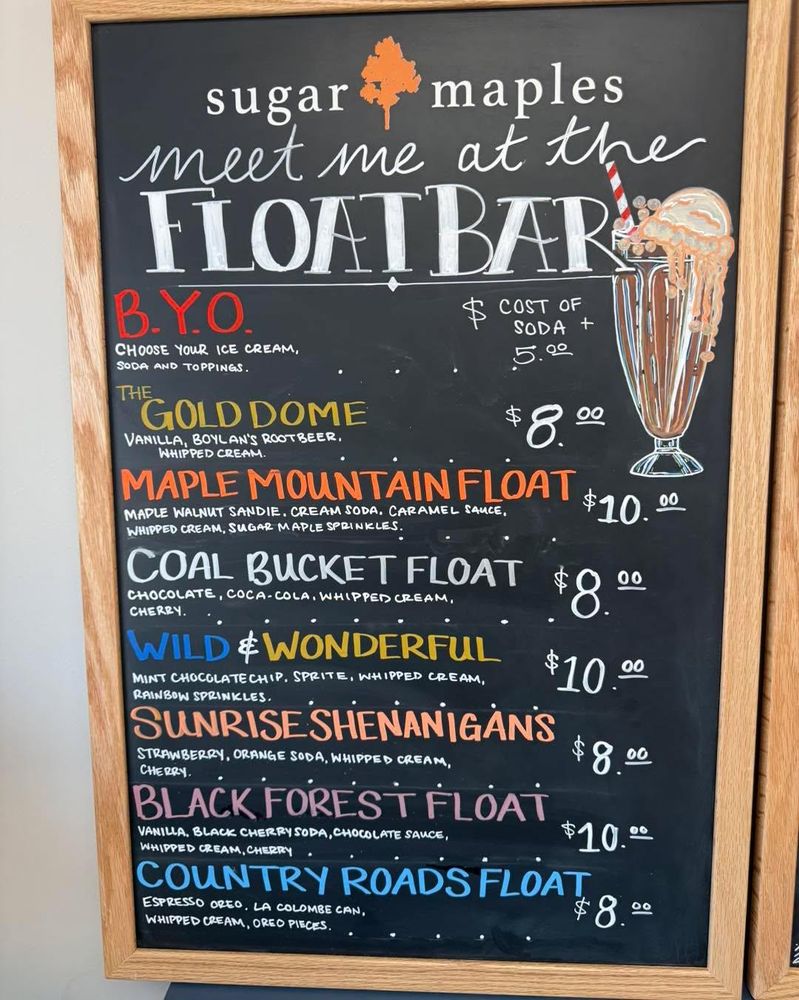 sugar maples
meet me at the
FLOAT BAR
B.Y.O.
$ COST OF
SODA +
5.00
CHOOSE YOUR ICE CREAM,
SODA AND TOPPINGS.
THE
GOLD DOME
$8.00
VANILLA, BOYLAN'S ROOTBEER,
WHIPPED CREAM.
MAPLE MOUNTAIN FLOAT
$10.00
MAPLE WALNUT SANDIE, CREAM SODA, CARAMEL SAUCE,
WHIPPED CREAM, SUGAR MAPLE SPRINKLES.
COAL BUCKET FLOAT
$8.00
CHOCOLATE, COCA-COLA, WHIPPED CREAM,
CHERRY.
WILD & WONDERFUL
$10.00
MINT CHOCOLATE CHIP, SPRITE, WHIPPED CREAM,
RAINBOW SPRINKLES.
SUNRISE SHENANIGANS
$8.00
STRAWBERRY, ORANGE SODA, WHIPPED CREAM,
CHERRY.
BLACK FOREST FLOAT
$10.00
VANILLA, BLACK CHERRY SODA, CHOCOLATE SAUCE,
WHIPPED CREAM, CHERRY
COUNTRY ROADS FLOAT
$8.00
ESPRESSO OREO, LA COLOMBE CAN,
WHIPPED CREAM, OREO PIECES.